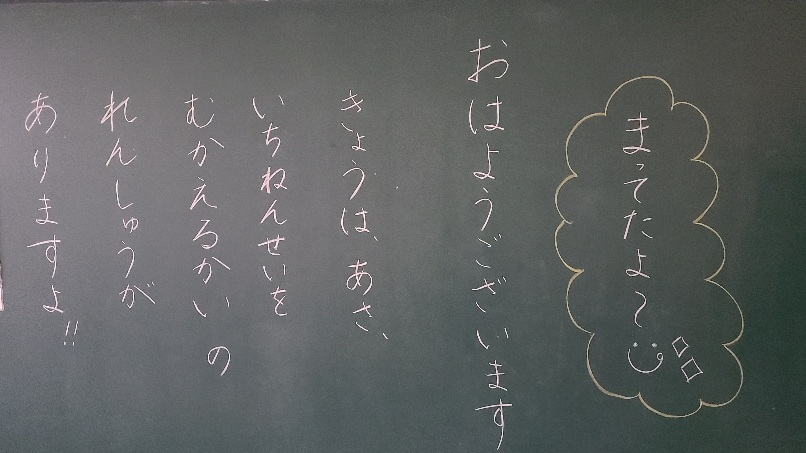 まってたよ〜
おはようございます
きょうは、あさ、
いちねんせいを
むかえるかいの
れんしゅうが
ありますよ!!